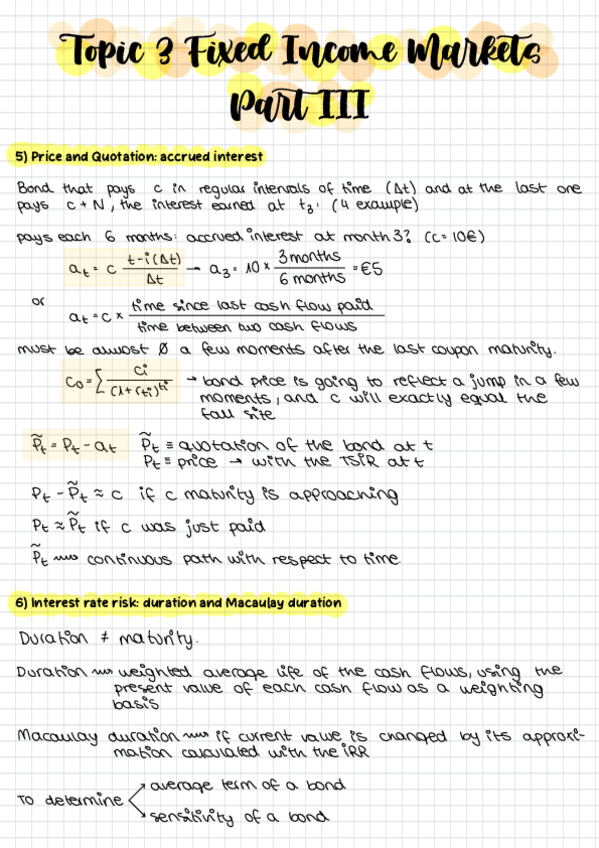 Topic 3 Fixed Income Markets
Part III
5) Price and Quotation: accrued interest
Bond that pays c in regular intervals of time (Δt) and at the last one
pays c + N, the interest earned at t₃: (4 example)
pays each 6 months: accrued interest at month 3? (c = 10€)
aₜ = c (t - i(Δt)) / Δt → a₃ = 10 × 3 months / 6 months = €5
or
aₜ = c × time since last cash flow paid / time between two cash flows
must be almost Ø a few moments after the last coupon maturity.
C₀ = Σ Ci / (1 + rti)^ti → bond price is going to reflect a jump in a few
moments, and c will exactly equal the
fall site
P̃ₜ = Pₜ - aₜ P̃ₜ ≡ quotation of the bond at t
Pₜ ≡ price → with the TSIR at t
Pₜ - P̃ₜ ≈ c if c maturity is approaching
Pₜ ≈ P̃ₜ if c was just paid
P̃ₜ ⟿ continuous path with respect to time.
6) Interest rate risk: duration and Macaulay duration
Duration ≠ maturity.
Duration ⟿ weighted average life of the cash flows, using the
present value of each cash flow as a weighting
basis
Macaulay duration ⟿ if current value is changed by its approxi-
mation calculated with the iRR
To determine
average term of a bond
sensitivity of a bond